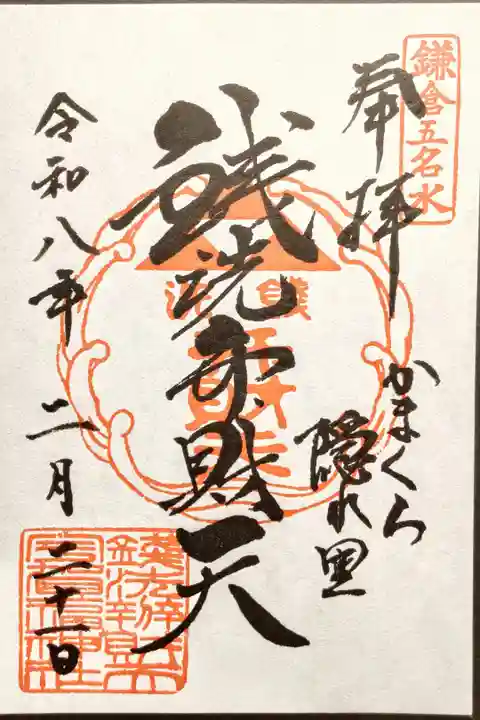 鎌倉五名水
奉拝
かまくら
隠れ里
銭洗弁財天
銭洗
令和八年二月二十一日